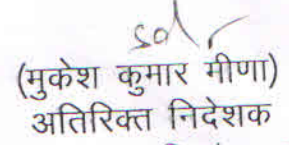 sd/
(मुकेश कुमार मीणा)
अतिरिक्त निदेशक